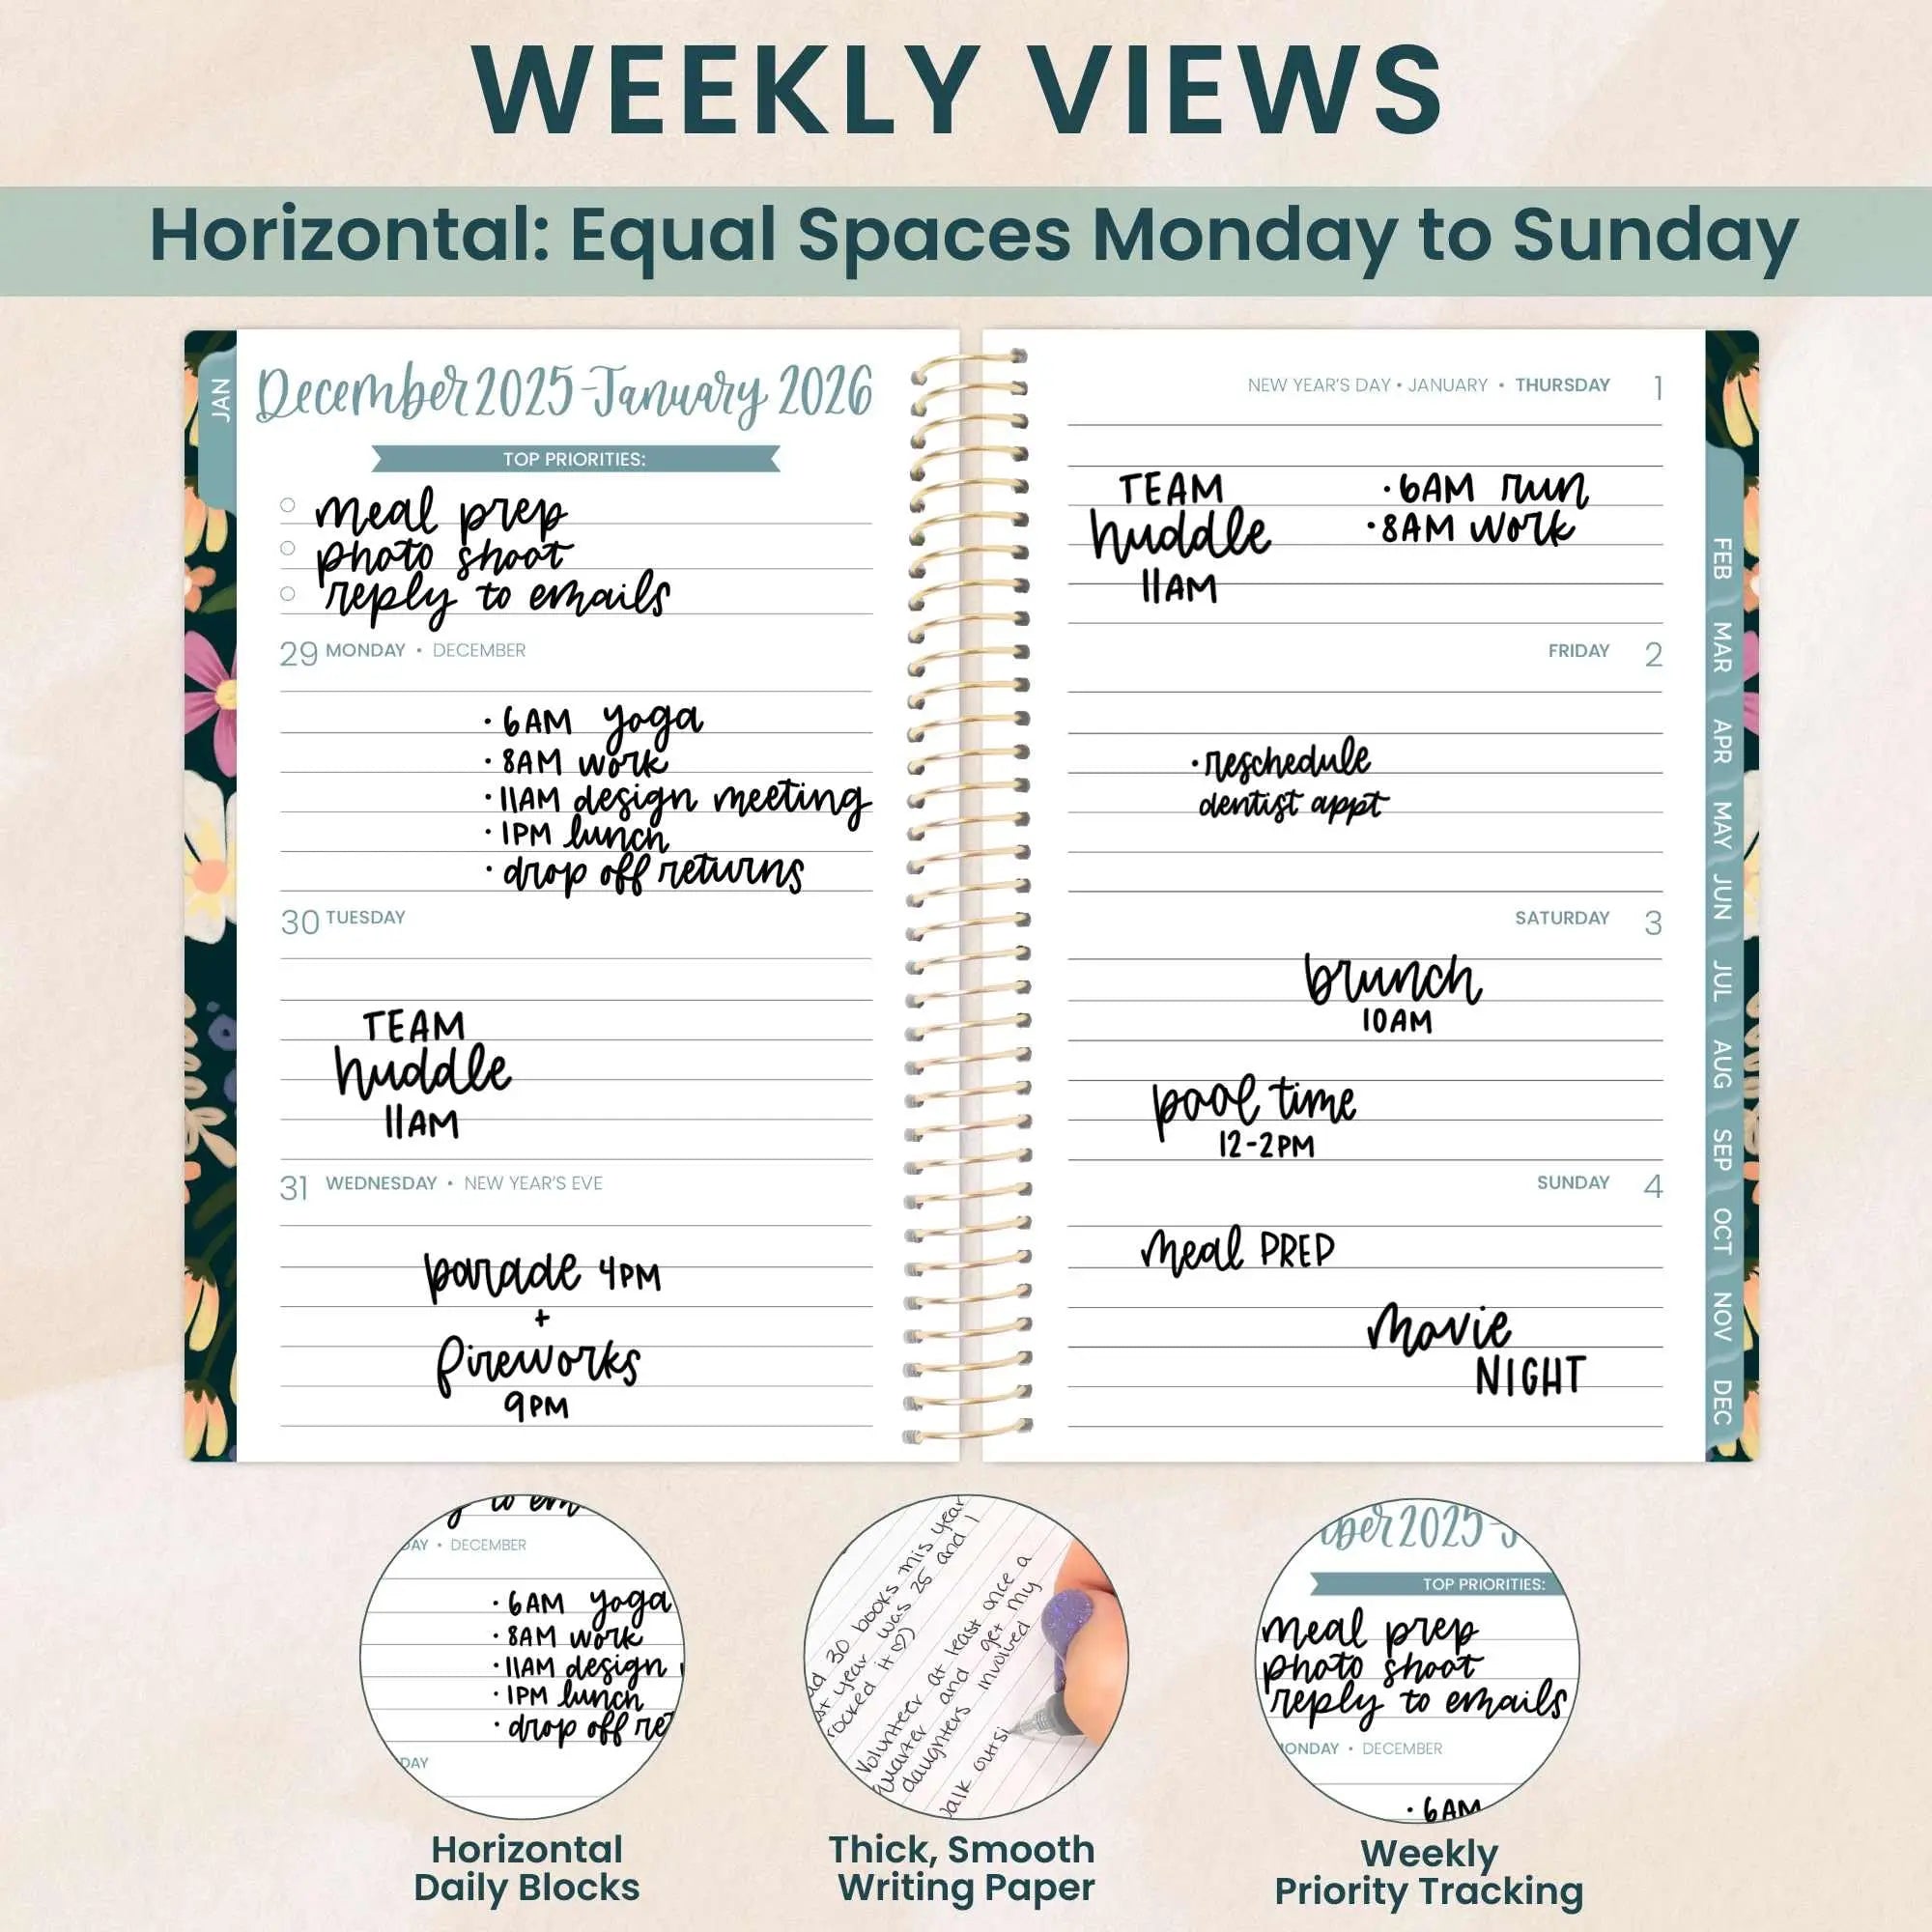 WEEKLY VIEWS
Horizontal: Equal Spaces Monday to Sunday
JAN
December 2025-January 2026
TOP PRIORITIES:
meal prep
photo shoot
reply to emails
29 MONDAY • DECEMBER
• 6AM yoga
• 8AM work
• 11AM design meeting
• 1PM lunch
• drop off returns
30 TUESDAY
TEAM
huddle
11AM
31 WEDNESDAY • NEW YEAR'S EVE
parade 4PM
+
fireworks
9PM
NEW YEAR'S DAY • JANUARY • THURSDAY 1
TEAM
huddle
11AM
• 6AM run
• 8AM work
FRIDAY 2
• reschedule
dentist appt
SATURDAY 3
brunch
10AM
pool time
12-2PM
SUNDAY 4
meal PREP
movie
NIGHT
FEB
MAR
APR
MAY
JUN
JUL
AUG
SEP
OCT
NOV
DEC
to em
DAY • DECEMBER
• 6AM yoga
• 8AM work
• 11AM design
• 1PM lunch
• drop off ret
DAY
Horizontal
Daily Blocks
ad 30 books this year
st year was 25 and I
rocked it ♡)
Volunteer at least once a
quarter and get my
daughters involved
walk outsi
Thick, Smooth
Writing Paper
ber 2025-J
TOP PRIORITIES:
meal prep
photo shoot
reply to emails
ONDAY • DECEMBER
• 6AM
Weekly
Priority Tracking